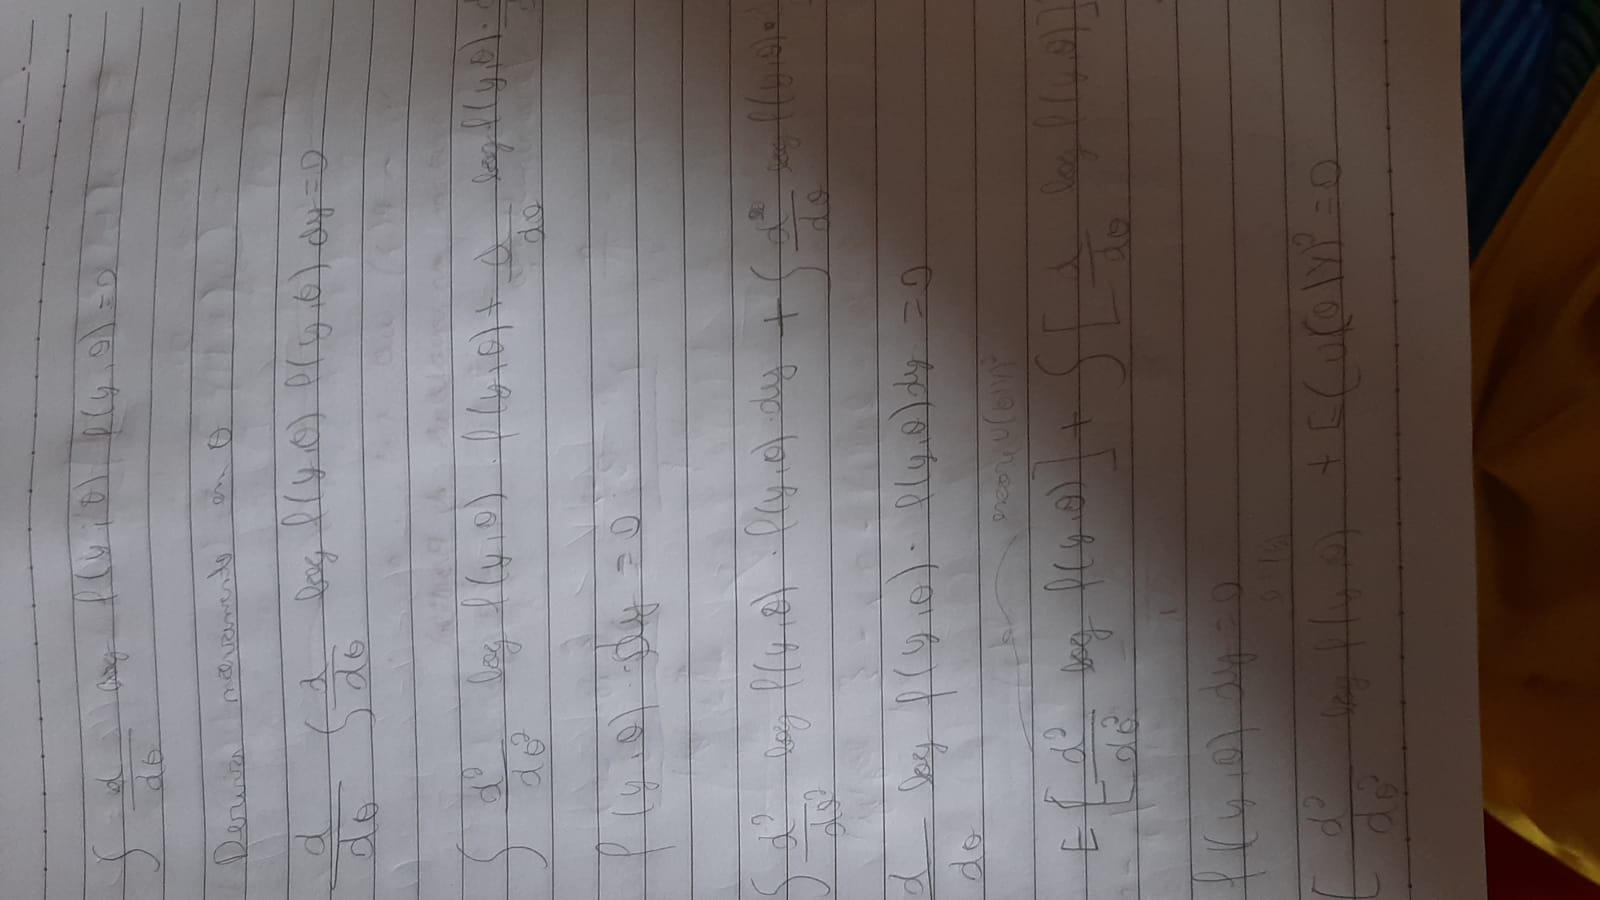 ∫ d/dθ log f(y,θ) f(y,θ) = 0
Derivar novamente em θ
d/dθ ∫ d/dθ log f(y,θ) f(y,θ) dy = 0
∫ d²/dθ² log f(y,θ) · f(y,θ) + d/dθ log f(y,θ) ·
f(y,θ) · dy = 0
∫ d²/dθ² log f(y,θ) · f(y,θ) · dy + ∫ d/dθ log f(y,θ) ·
d/dθ log f(y,θ) · f(y,θ) dy = 0
E [ d²/dθ² log f(y,θ) ] + ∫ [ d/dθ log f(y,θ) ]
f(y,θ) dy = 0
[ d²/dθ² log f(y,θ) + E(U(θ|Y)² = 0